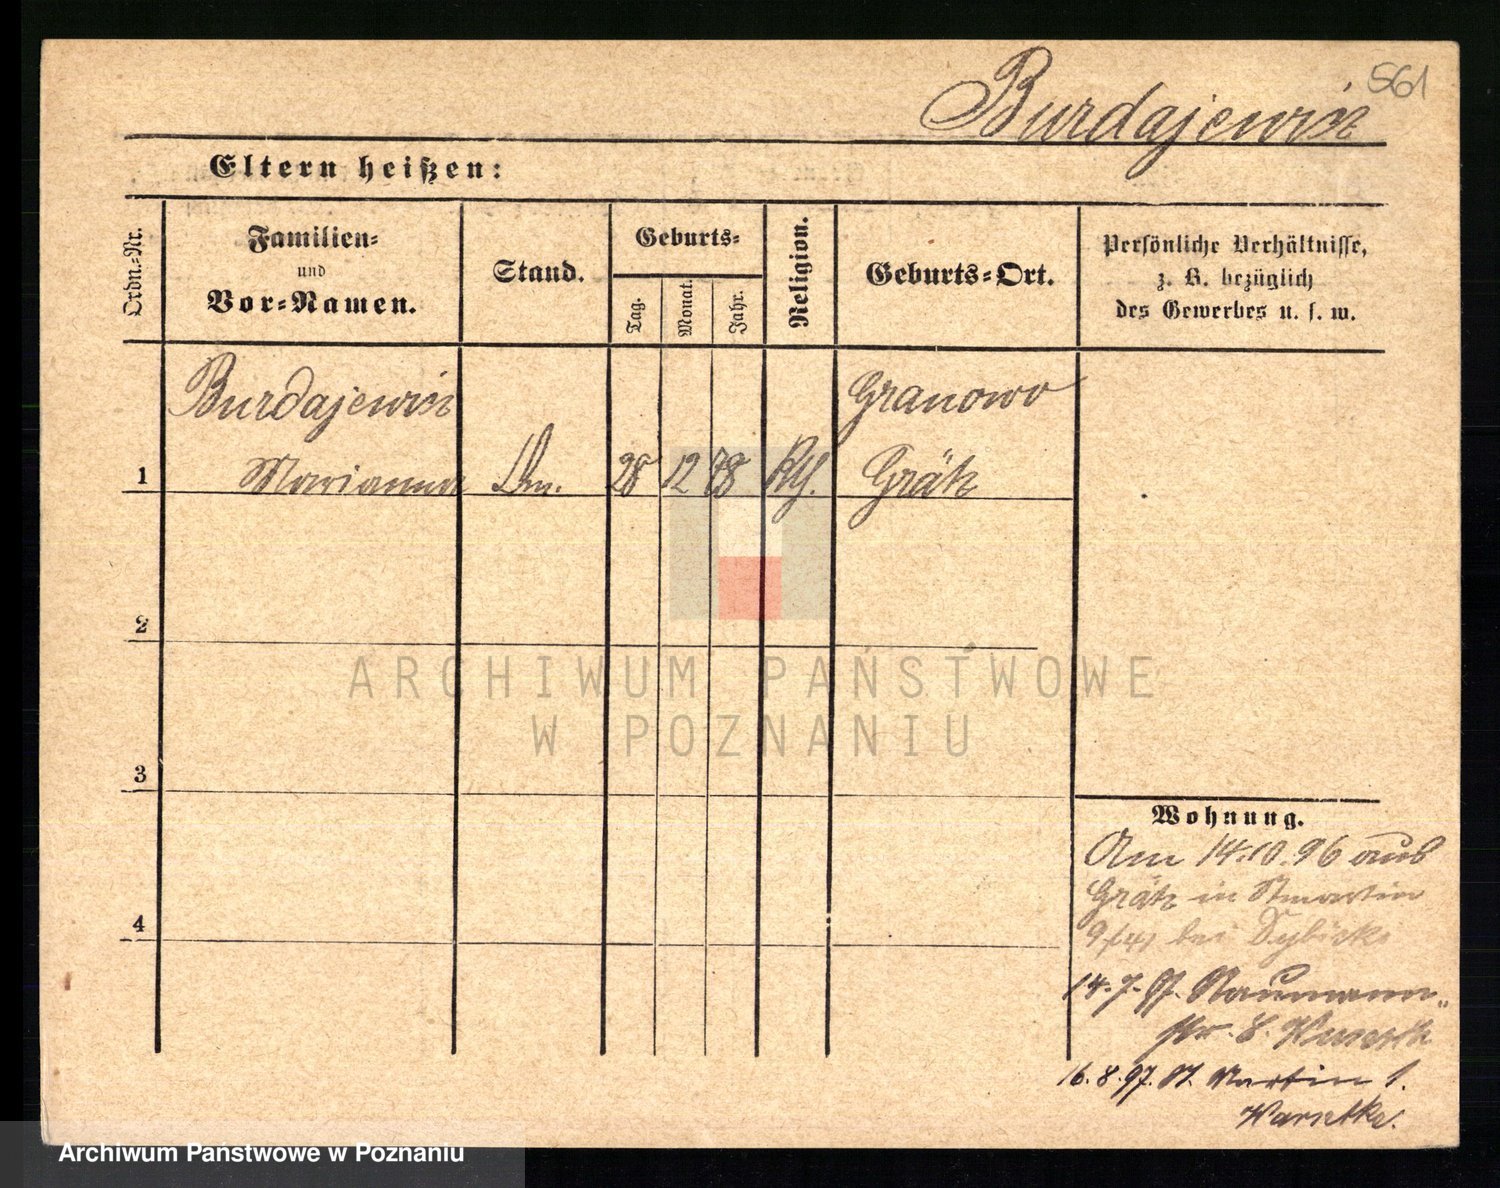 561
Burdajewicz
Eltern heißen:
Ordn.-Nr.
Familien-
und
Vor-Namen.
Stand.
Geburts-
Tag.
Monat.
Jahr.
Religion.
Geburts-Ort.
Persönliche Verhältnisse,
z. B. bezüglich
des Gewerbes u. s. w.
Burdajewicz
Granowo
1 Marianna 28 12 78 Grätz
2
3
4
Wohnung.
Am 14.10.96 aus
Grätz in St martin
bei
14.7.97. Naumann-
str. 8.
16.8.97. St. Martin 1.
ARCHIWUM PAŃSTWOWE
W POZNANIU
Archiwum Państwowe w Poznaniu